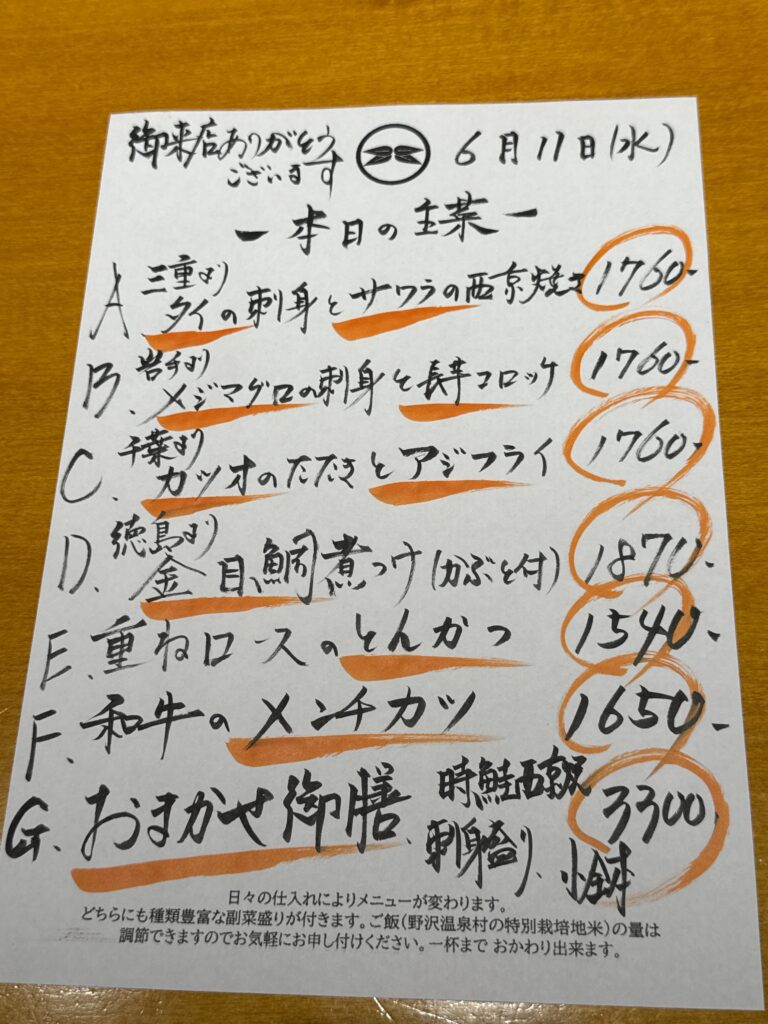 御来店ありがとう
ございます
6月11日(水)
ー本日の主菜ー
三重より
A タイの刺身とサワラの西京焼き 1760-
岩手より
B. メジマグロの刺身と長芋コロッケ 1760-
千葉より
C. カツオのたたきとアジフライ 1760-
徳島より
D. 金目鯛煮つけ(かぶと付) 1870-
E. 重ねロースのとんかつ 1540-
F. 和牛のメンチカツ 1650-
G. おまかせ御膳 時鮭西京焼 3300-
刺身盛り、小鉢
日々の仕入れによりメニューが変わります。
どちらにも種類豊富な副菜盛りが付きます。ご飯(野沢温泉村の特別栽培地米)の量は
調節できますのでお気軽にお申し付けください。一杯まで おかわり出来ます。